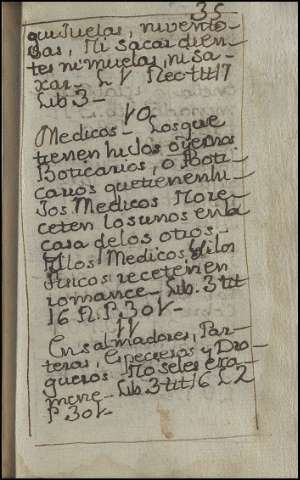 35
quijuelas, ni vento-
sas, Ni sacar dien-
tes ni muelas, ni sa-
xar- L 1 Rec tit 17
Lib 3-
10
Medicos- Los que
tienen hixos o yernos
Boticarios, o Boti-
carios que tienen hi-
Jos Medicos No re-
ceten los unos en la
casa de los otros-
Y los Medicos y Silos
fisicos receten en
romance- Lib. 3 tit
16 P. 301-
11
Ensalmadores, Par-
teras, Especieros y Dro-
gueros No se les exa-
mene- Lib 3 tit 16 L 2
P. 301-